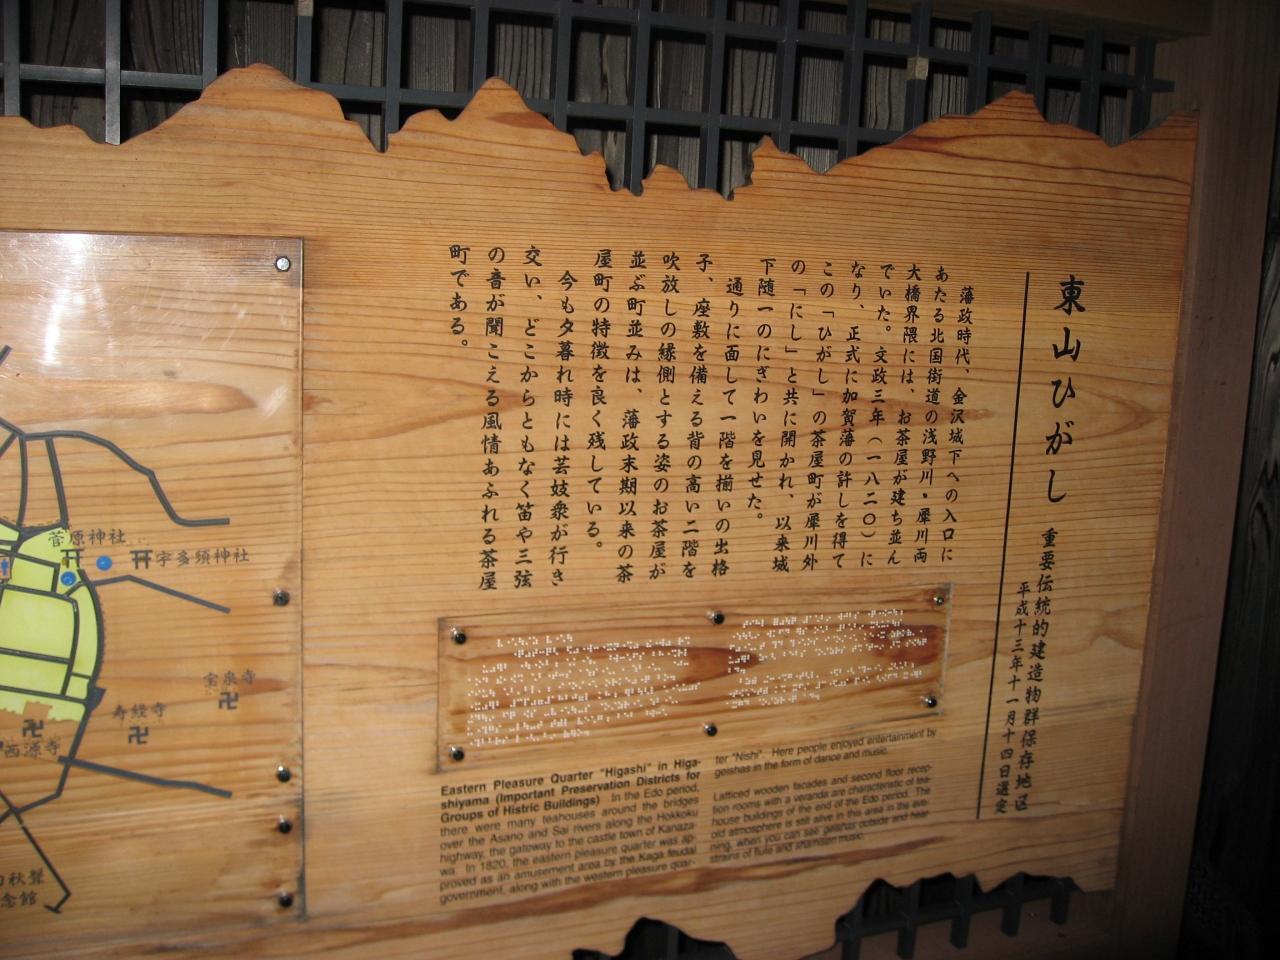 東山ひがし
重要伝統的建造物群保存地区
平成十三年十一月十四日選定
藩政時代、金沢城下への入口に
あたる北国街道の浅野川・犀川両
大橋界隈には、お茶屋が建ち並ん
でいた。文政三年（一八二〇）に
なり、正式に加賀藩の許しを得て
この「ひがし」の茶屋町が犀川外
の「にし」と共に開かれ、以来城
下随一のにぎわいを見せた。
通りに面して一階を揃いの出格
子、座敷を備える背の高い二階を
吹放しの縁側とする姿のお茶屋が
並ぶ町並みは、藩政末期以来の茶
屋町の特徴を良く残している。
今も夕暮れ時には芸妓衆が行き
交い、どこからともなく笛や三弦
の音が聞こえる風情あふれる茶屋
町である。
Eastern Pleasure Quarter "Higashi" in Higa-
shiyama (Important Preservation Districts for
Groups of Histric Buildings) In the Edo period,
there were many teahouses around the bridges
over the Asano and Sai rivers along the Hokkoku
highway, the gateway to the castle town of Kanaza-
wa. In 1820, the eastern pleasure quarter was ap-
proved as an amusement area by the Kaga feudal
government, along with the western pleasure quar-
ter "Nishi". Here people enjoyed entertainment by
geishas in the form of dance and music.
Latticed wooden facades and second floor recep-
tion rooms with a veranda are characteristic of tea-
house buildings of the end of the Edo period. The
old atmosphere is still alive in this area in the eve-
ning, when you can see geishas outside and hear
strains of flute and shamisen music.
菅原神社
宇多須神社
宝泉寺
寿経寺
西源寺
秋聲
念館